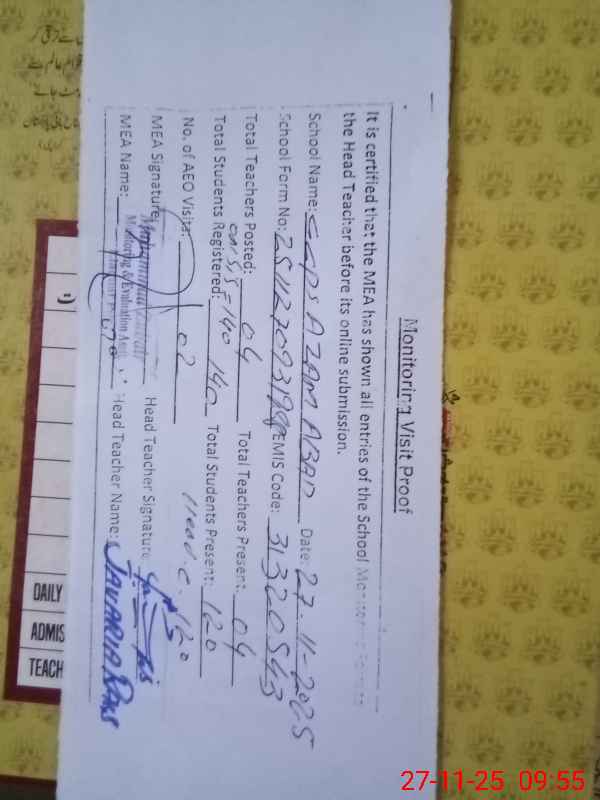 Monitoring Visit Proof
It is certified that the MEA has shown all entries of the School Monitoring
the Head Teacher before its online submission.
School Name: GGPS AZAM ABAD Date: 27-11-2025
School Form No: EMIS Code: 31320543
Total Teachers Posted: 04 Total Teachers Present: 04
on SIS = 140
Total Students Registered: 140 Total Students Present: 120
Head.C. 120
No. of AEO Visits: 02
MEA Signature: Head Teacher Signature:
Monitoring & Evaluation
MEA Name: Head Teacher Name: JAVARIA
DAILY
ADMIS
TEACH
27-11-25 09:55